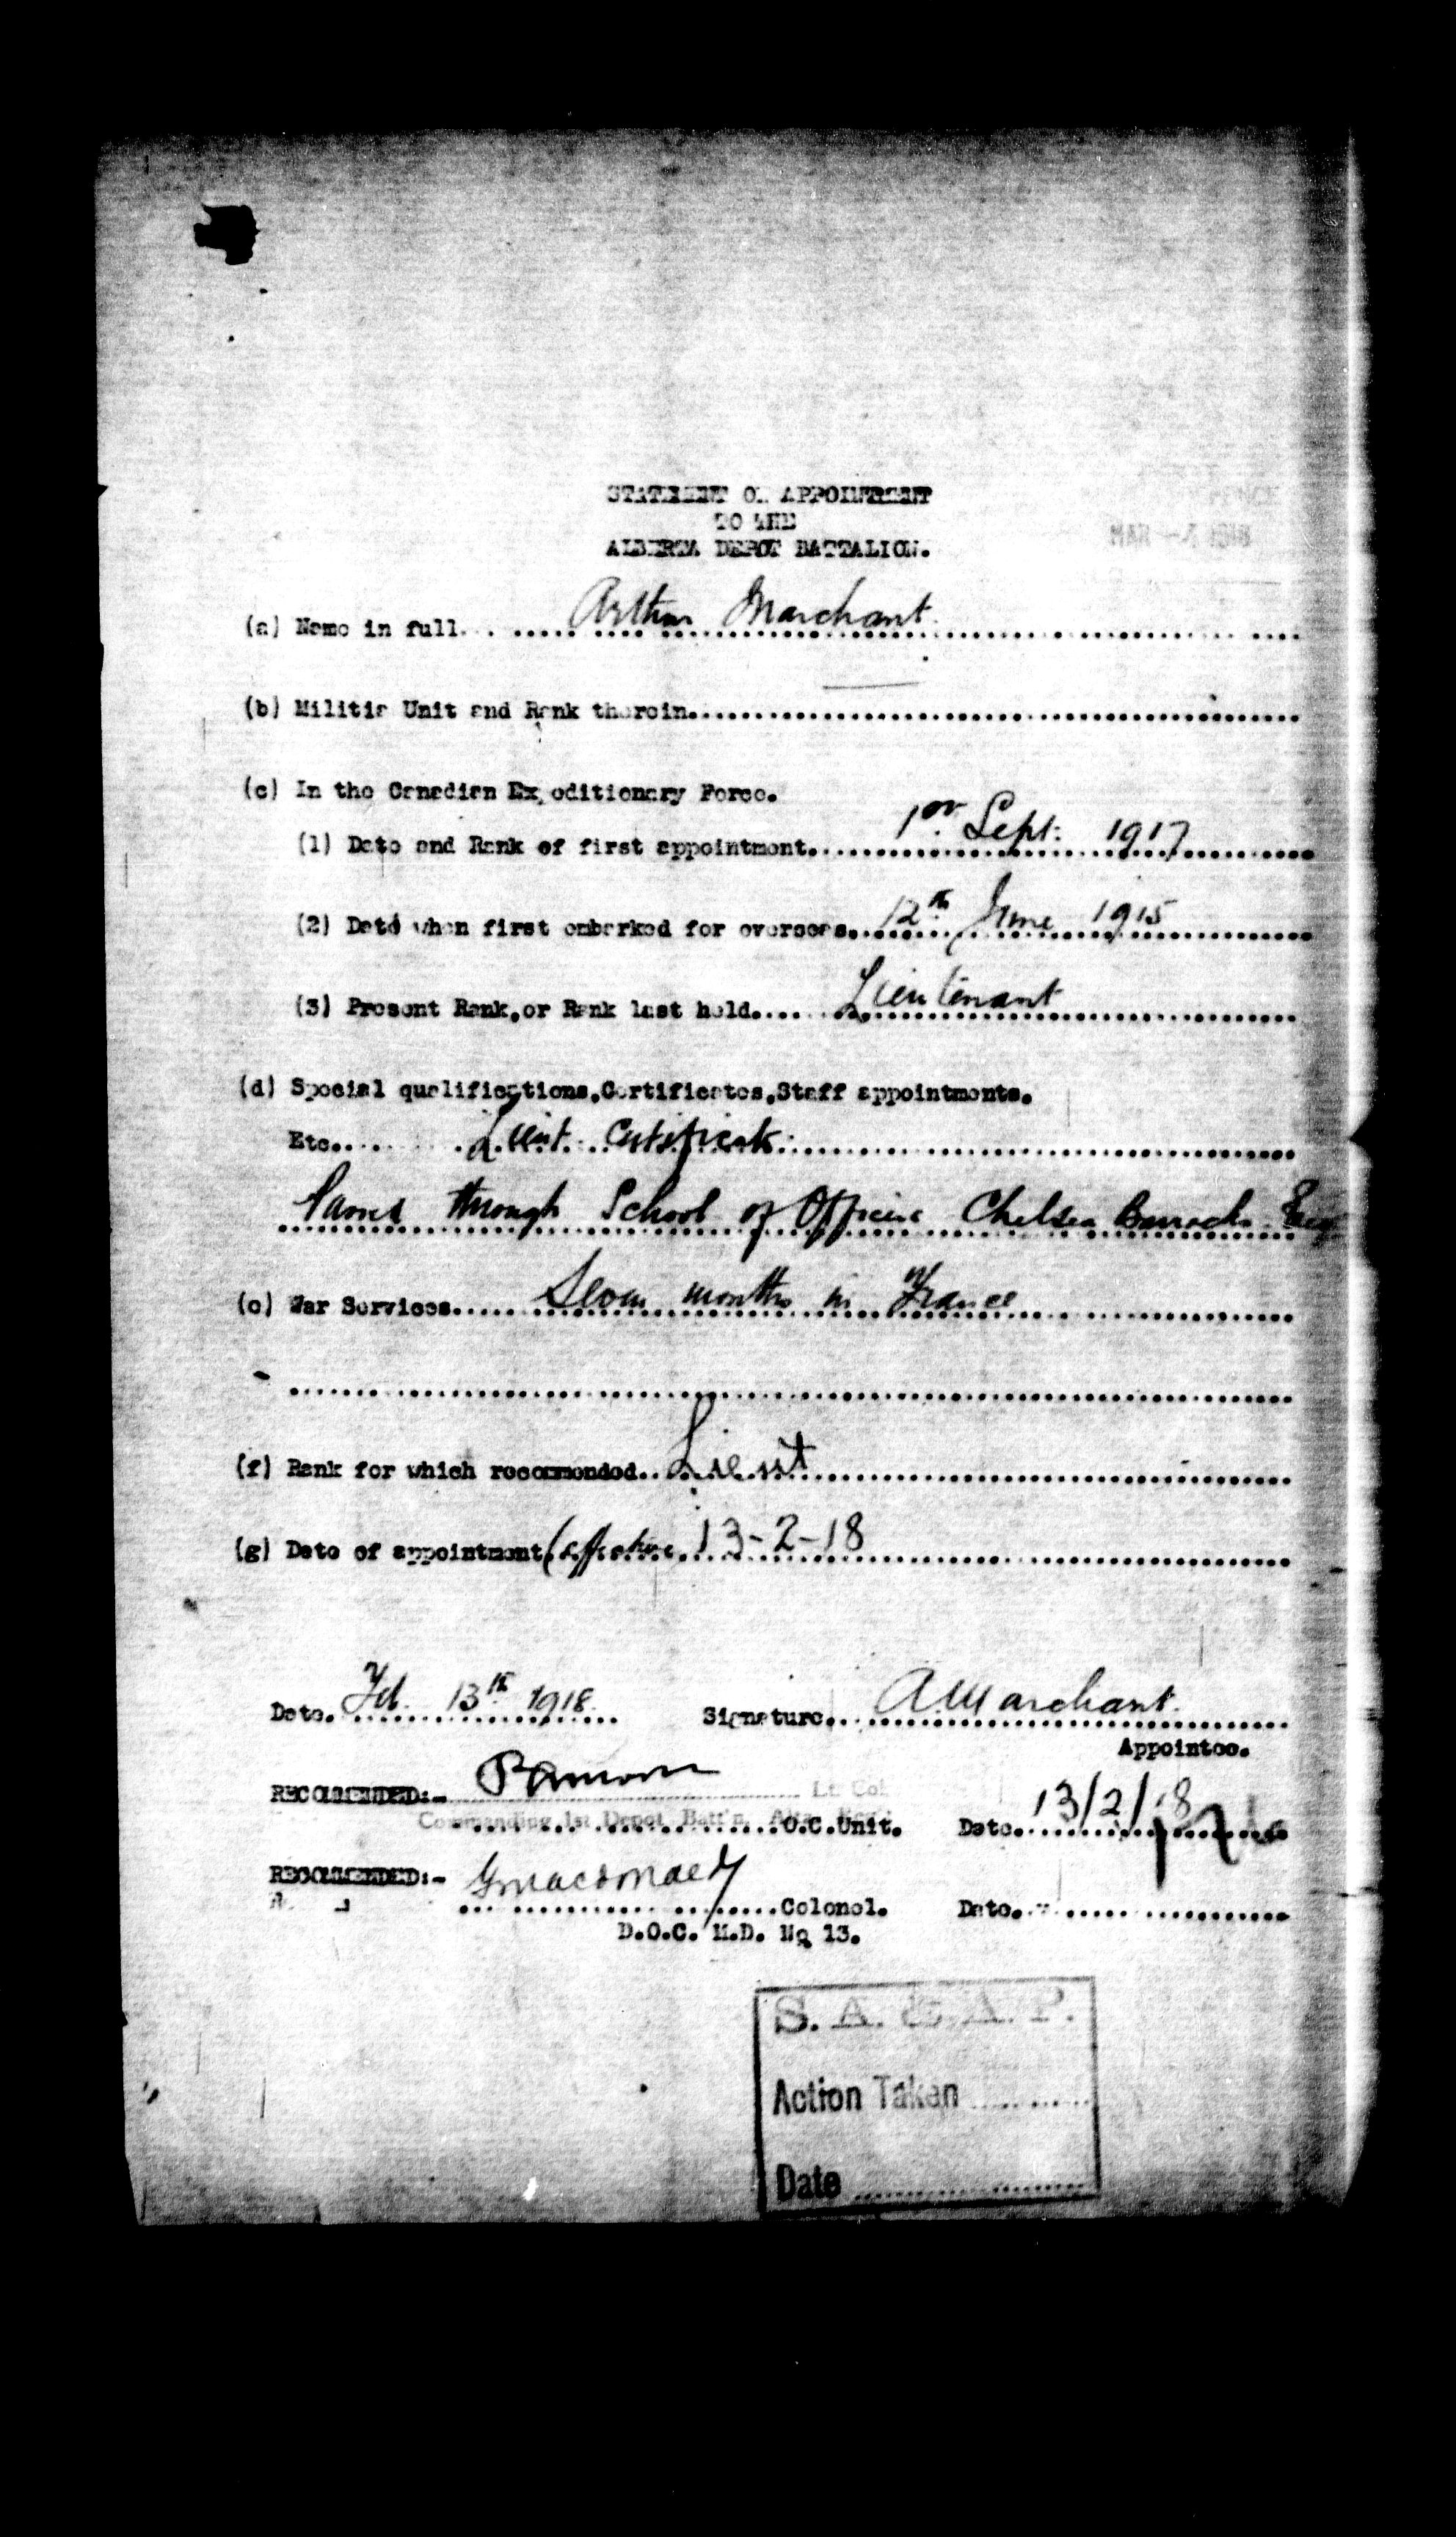 STATEMENT OF APPOINTMENT
TO THE
ALBERTA DEPOT BATTALION.
(a) Name in full... Arthur Marchant.
(b) Militia Unit and Rank therein...
(c) In the Canadian Expeditionary Force.
(1) Date and Rank of first appointment... 1st Sept: 1917
(2) Date when first embarked for overseas... 12th June 1915
(3) Present Rank, or Rank last held... Lieutenant
(d) Special qualifications, Certificates, Staff appointments.
Etc... Lieut. Certificate.
Passed through School of Officers Chelsea Barracks
(e) War Services... Seven months in France
(f) Rank for which recommended... Lieut
(g) Date of appointment (effective 13-2-18
Date. Feb. 13th 1918. Signature... A Marchant.
Appointee.
RECOMMENDED:- Lt. Col.
Commanding 1st Depot Batt'n, Alta. Reg't. O.C.Unit. Date. 13/2/18
RECOMMENDED:- Macdonald Colonel. Date...
D.O.C. M.D. No 13.
S. A. & A. P.
Action Taken
Date